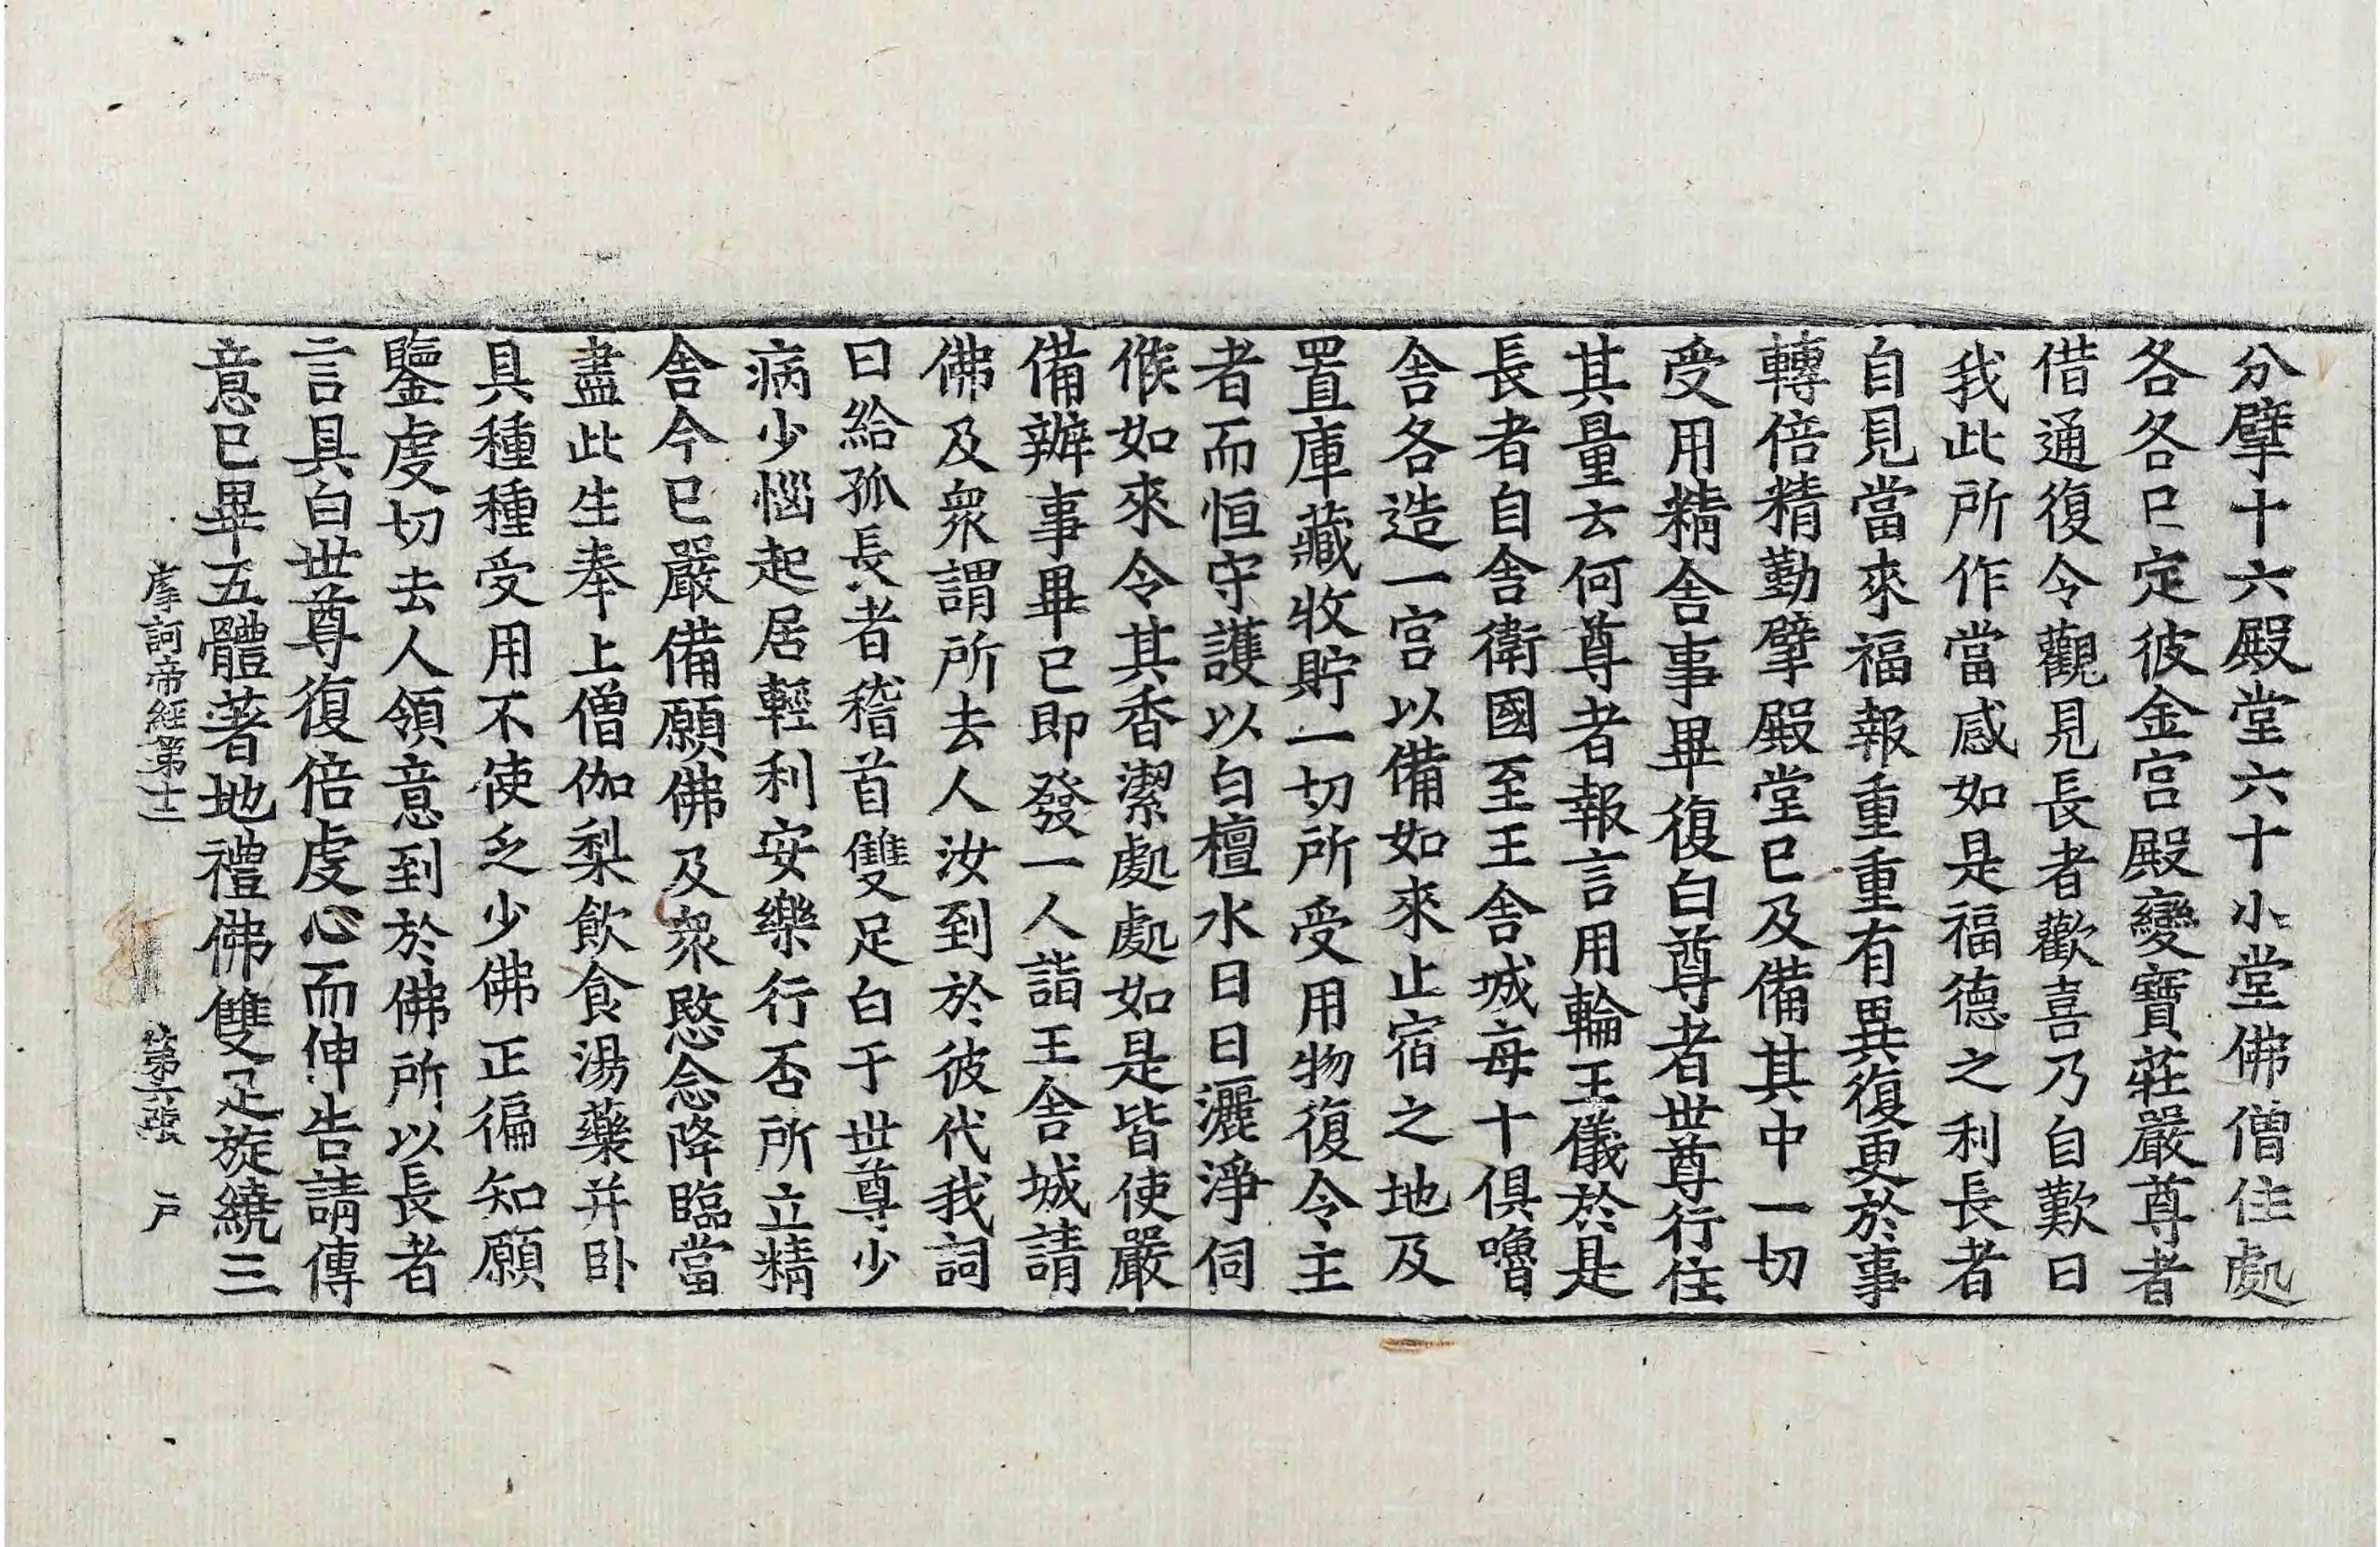 分擘十六殿堂六十小堂佛僧住處
各各已定彼金宮殿變寶莊嚴尊者
借通復令觀見長者歡喜乃自歎曰
我此所作當感如是福德之利長者
自見當來福報重重有異復更於事
轉倍精勤擘殿堂已及備其中一切
受用精舍事畢復白尊者世尊行住
其量云何尊者報言用輪王儀於是
長者自舍衛國至王舍城每十俱嚕
舍各造一宮以備如來止宿之地及
置庫藏收貯一切所受用物復令主
者而恒守護以白檀水日日灑淨伺
候如來令其香潔處處如是皆使嚴
備辦事畢已即發一人詣王舍城請
佛及衆謂所去人汝到於彼代我詞
曰給孤長者稽首雙足白于世尊少
病少惱起居輕利安樂行否所立精
舍今已嚴備願佛及衆愍念降臨當
盡此生奉上僧伽梨飲食湯藥并卧
具種種受用不使乏少佛正徧知願
鑒虔切去人領意到於佛所以長者
言具白世尊復倍虔心而伸告請傳
意已畢五體著地禮佛雙足旋繞三
摩訶帝經第十二 第六張 户